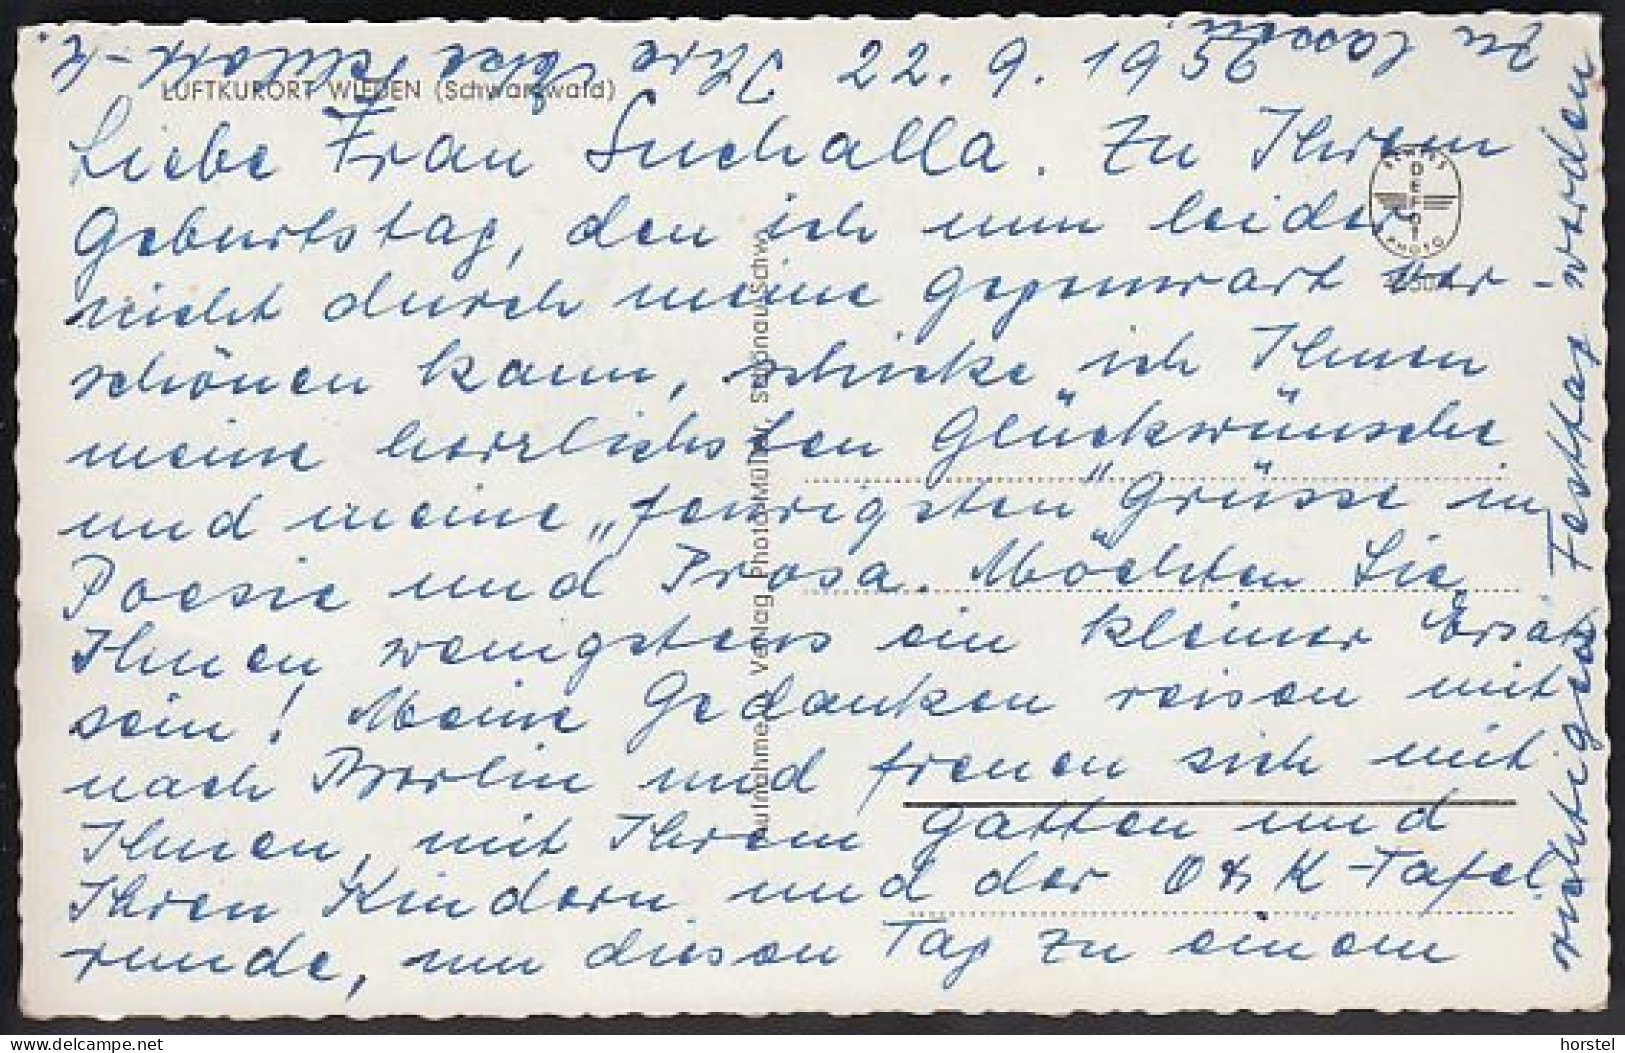 22. 9. 1956
LUFTKURORT WIEDEN (Schwarzwald)
Liebe Frau Suchalla. Zu Ihrem
Geburtstag, den ich nun leider
nicht durch meine Gegenwart ver-
schönen kann, schicke ich Ihnen
meine herzlichsten Glückwünsche
und meine „feurigsten" Grüsse in
Poesie und Prosa. Möchten Sie
Ihnen wenigstens ein kleiner Ersatz
sein! Meine Gedanken reisen mit
nach Berlin und freuen sich mit
Ihnen, mit Ihrem Gatten und
Ihren Kindern und der O & K-Tafel-
runde, um diesen Tag zu einem
richtigen Festtag werden
zu lassen.
Ihre
Aufnahme u. Verlag Photo-Müller, Schönau/Schw.
DEFOT
PHOTO
horstel